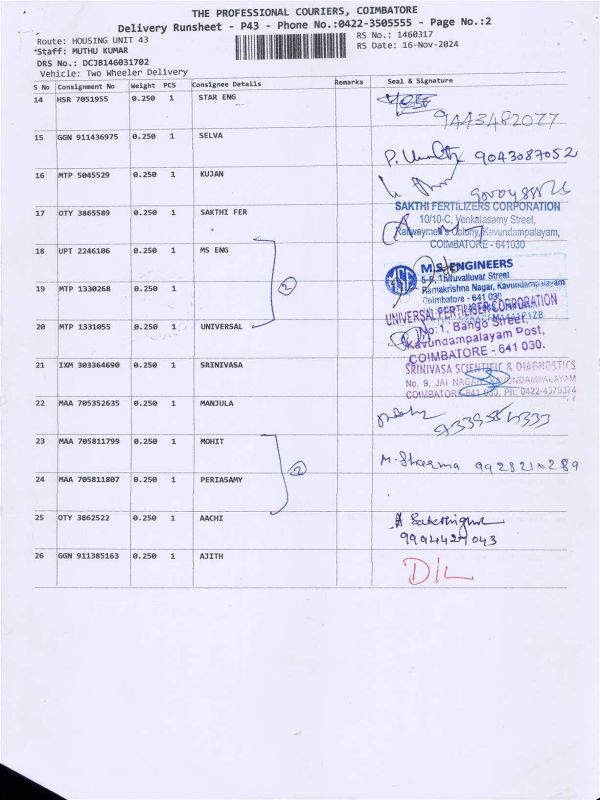 THE PROFESSIONAL COURIERS, COIMBATORE
Delivery Runsheet - P43 - Phone No.:0422-3505555 - Page No.:2
Route: HOUSING UNIT 43
RS No.: 1460317
Staff: MUTHU KUMAR
RS Date: 16-Nov-2024
DRS No.: DCJB146031702
Vehicle: Two Wheeler Delivery
S No Consignment No Weight PCS Consignee Details Remarks Seal & Signature
14 HSR 7051955 0.250 1 STAR ENG
9443482077
15 GGN 911436975 0.250 1 SELVA
9043087052
16 MTP 5045529 0.250 1 KUJAN
17 OTY 3865589 0.250 1 SAKTHI FER
SAKTHI FERTILIZERS CORPORATION
10/10-C, Venkatasamy Street,
Railwaymen's Colony, Kavundampalayam,
COIMBATORE - 641030
18 UPT 2246106 0.250 1 MS ENG
M.S. ENGINEERS
Thiruvalluvar Street
Ramakrishna Nagar, Kavundampalayam
Coimbatore - 641 030
19 MTP 1330268 0.250 1
2
20 MTP 1331055 0.250 1 UNIVERSAL
UNIVERSAL FERTILISER CORPORATION
No:1, Bango Street,
Kavundampalayam Post,
COIMBATORE - 641 030.
21 IXM 303364690 0.250 1 SRINIVASA
SRINIVASA SCIENTIFIC & DIAGNOSTICS
No. 9, JAI NAGAR, KAVUNDAMPALAYAM
COIMBATORE-641 030. Ph: 0422-4379374
22 MAA 705352635 0.250 1 MANJULA
23 MAA 705811799 0.250 1 MOHIT
2
M. Sharma 9928210289
24 MAA 705811807 0.250 1 PERIASAMY
25 OTY 3862522 0.250 1 AACHI
9994427043
26 GGN 911385163 0.250 1 AJITH
D/L